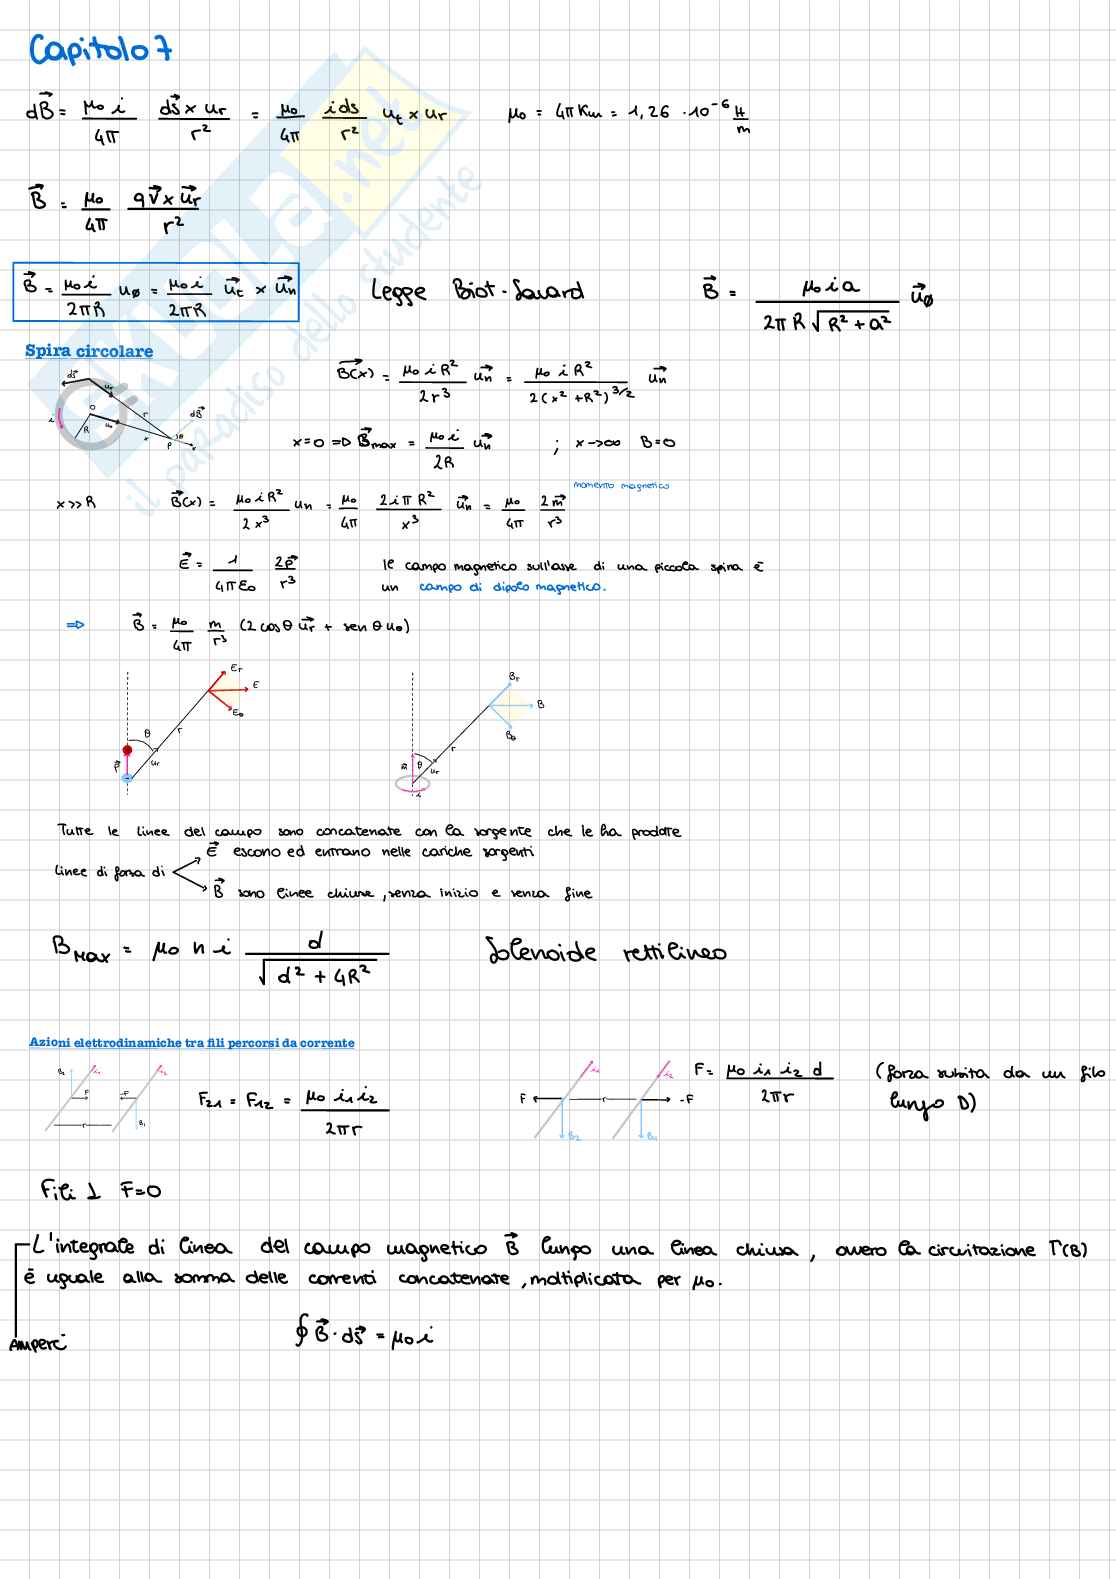 Capitolo 7
dB⃗ = μ₀ i / 4π ds⃗ × ur / r² = μ₀ / 4π i ds / r² ut × ur μ₀ = 4π Km = 1,26 · 10⁻⁶ H/m
B⃗ = μ₀ / 4π q v⃗ × u⃗r / r²
B⃗ = μ₀ i / 2πR uφ = μ₀ i / 2πR u⃗t × u⃗n Legge Biot-Savard B⃗ = μ₀ i a / 2πR √(R² + a²) u⃗φ
Spira circolare
B⃗(x) = μ₀ i R² / 2r³ u⃗n = μ₀ i R² / 2(x² + R²)^3/2 u⃗n
ds⃗ ur r dB⃗ i O R un x P θ
x=0 ⇒ B⃗max = μ₀ i / 2R u⃗n ; x→∞ B=0
momento magnetico
x>>R B⃗(x) = μ₀ i R² / 2x³ un = μ₀ / 4π 2iπR² / x³ u⃗n = μ₀ / 4π 2m⃗ / r³
E⃗ = 1 / 4πε₀ 2p⃗ / r³ le campo magnetico sull'asse di una piccola spira è
un campo di dipolo magnetico.
⇒ B⃗ = μ₀ / 4π m / r³ (2cosθ u⃗r + senθ uθ)
Er E Eθ θ r ur p⃗
Br B Bθ r m⃗ θ ur i
Tutte le linee del campo sono concatenate con la sorgente che le ha prodotte
E⃗ escono ed entrano nelle cariche sorgenti
linee di forza di
B⃗ sono linee chiuse, senza inizio e senza fine
BMax = μ₀ n i d / √(d² + 4R²) Solenoide rettilineo
Azioni elettrodinamiche tra fili percorsi da corrente
B₂ i₁ i₂ F -F r B₁
F₂₁ = F₁₂ = μ₀ i₁ i₂ / 2πr
F i₁ i₂ r -F B₂ B₁
F = μ₀ i₁ i₂ d / 2πr (forza subita da un filo
lungo D)
Fili ⊥ F=0
L'integrale di linea del campo magnetico B⃗ lungo una linea chiusa, ovvero la circuitazione Γ(B)
è uguale alla somma delle correnti concatenate, moltiplicata per μ₀.
Amperé
∮ B⃗ · ds⃗ = μ₀ i
SKUOLA.net
il paradiso dello studente